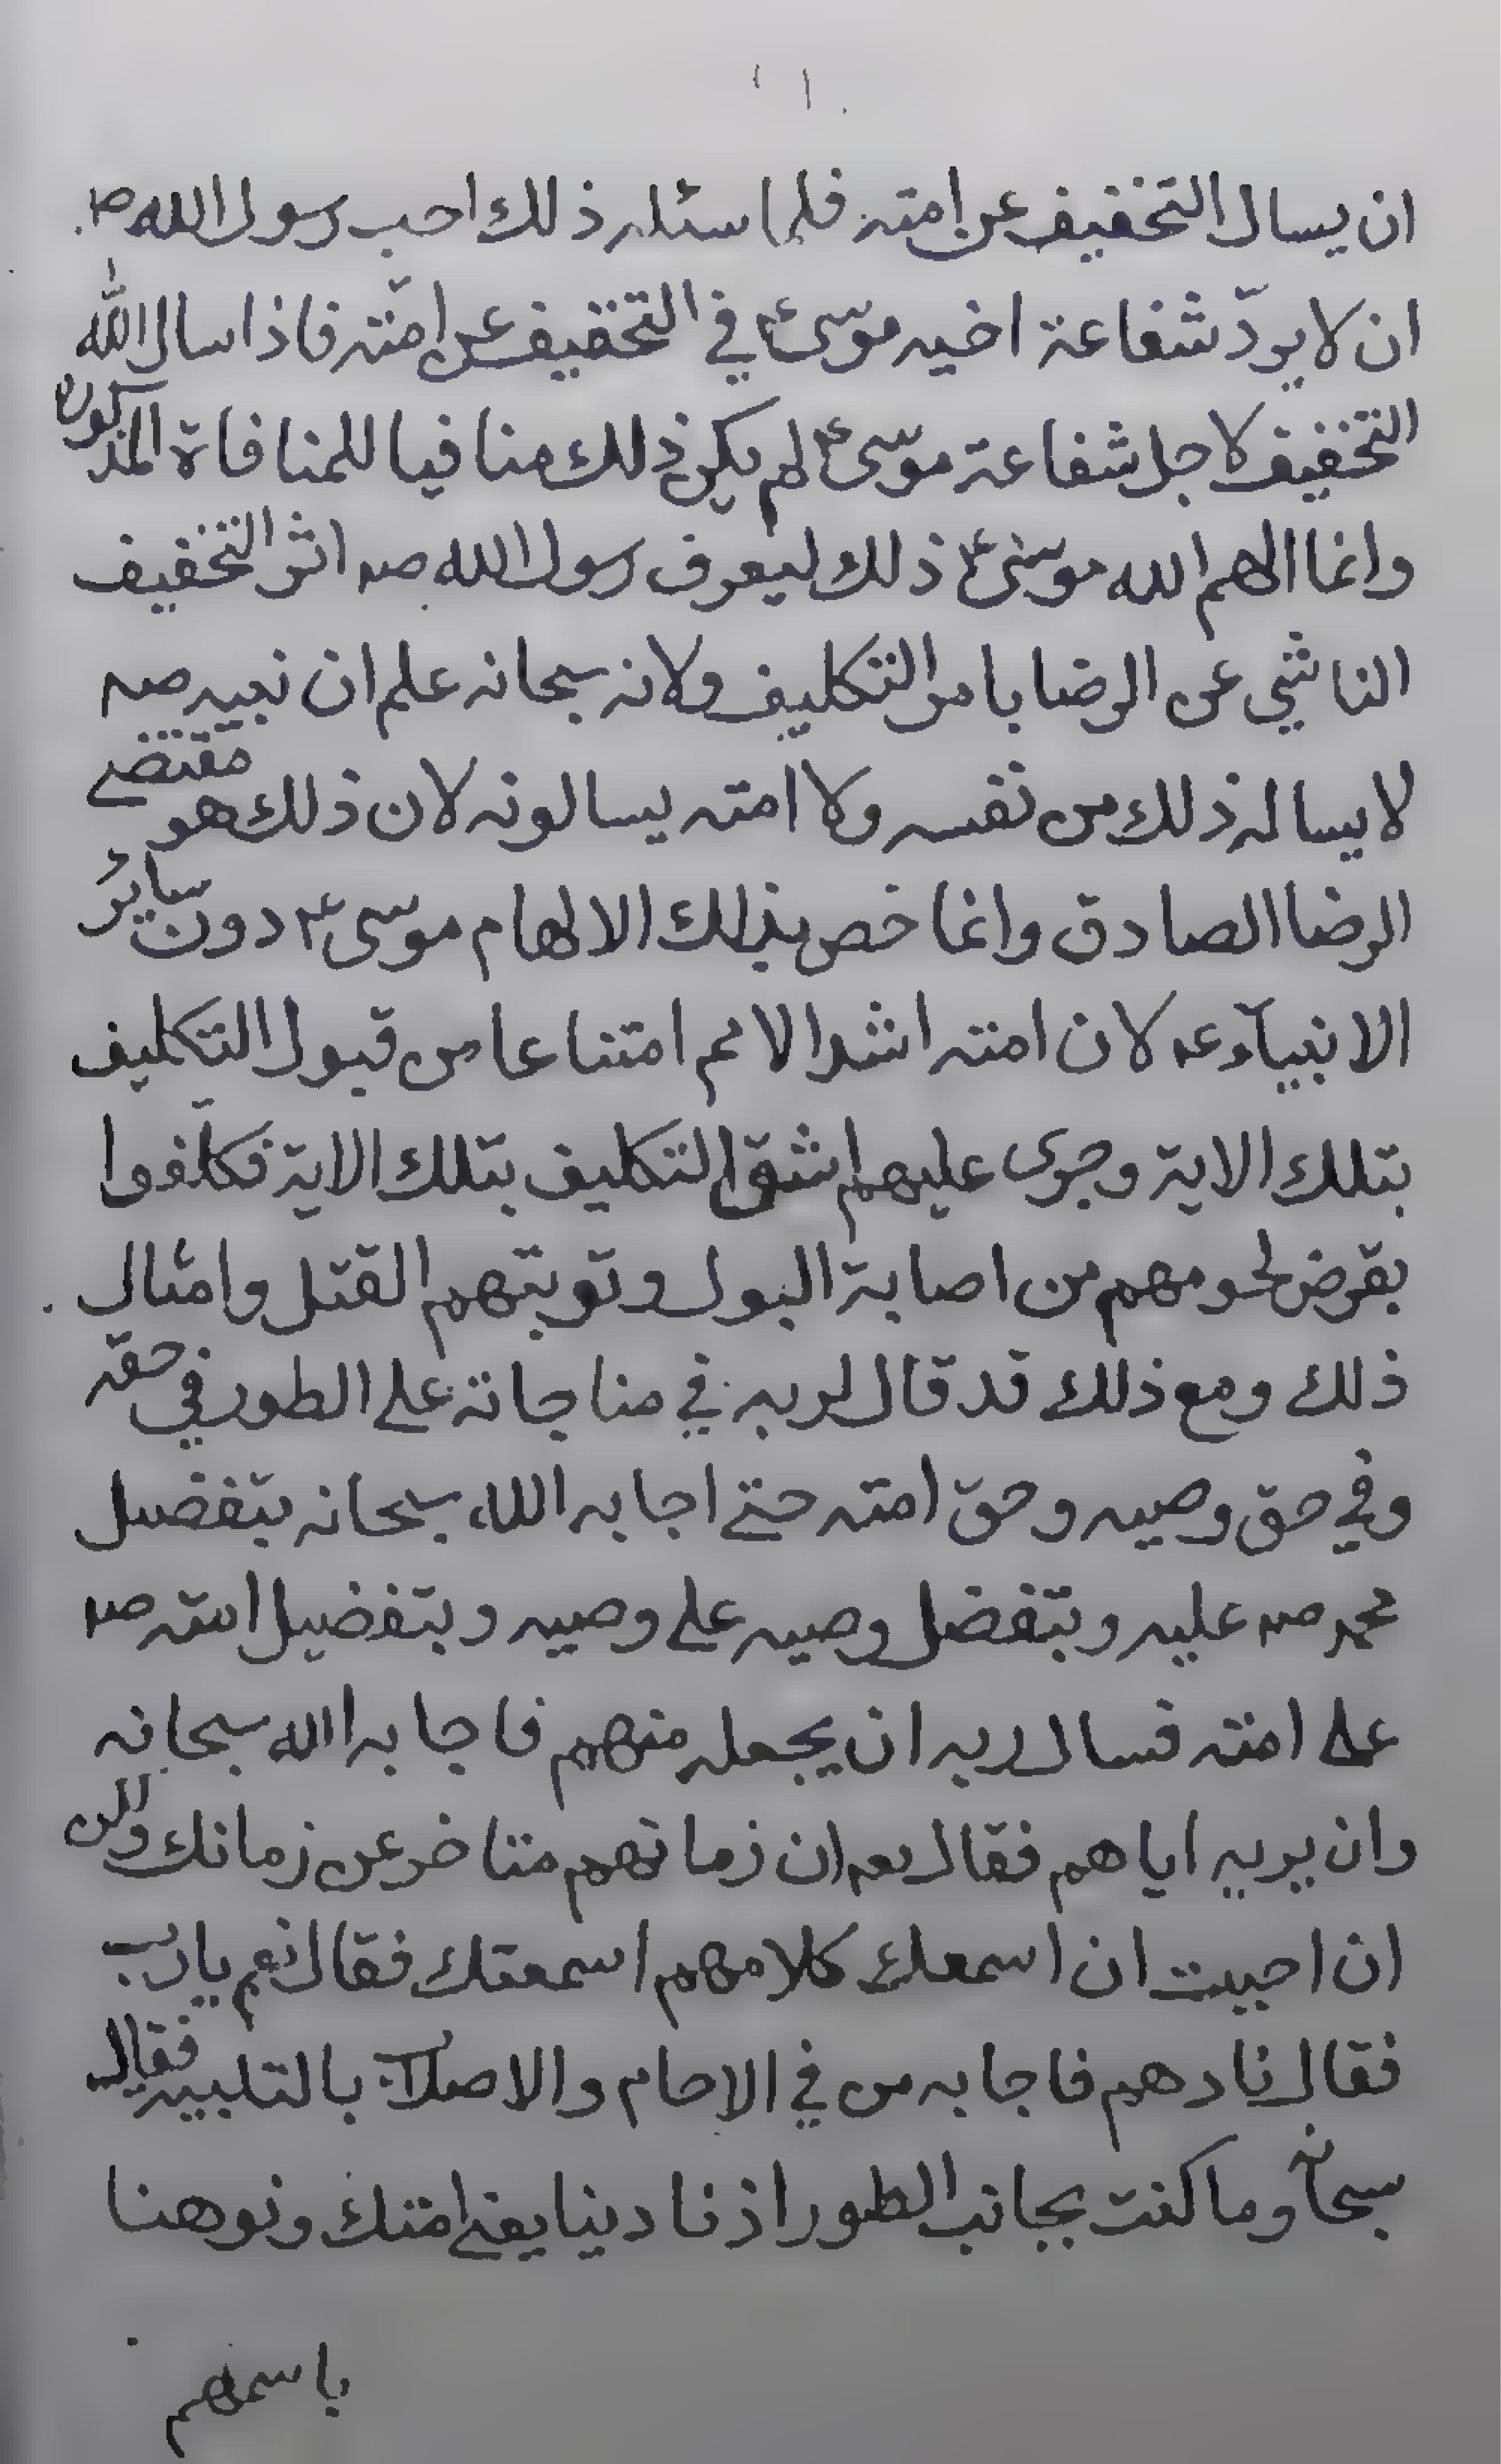 ان يسال التخفيف عن امته فلما سئله ذلك احب رسول الله ص
ان لا يردّ شفاعة اخيه موسى ع في التخفيف عن امّته فاذا سال الله
التخفيف لاجل شفاعة موسى ع لم يكن ذلك منافيا للمنافاة المذكورة
وانما الهم الله موسى ع ذلك ليعرف رسول الله صه اثر التخفيف
الناشي عن الرضا بامر التكليف ولانه سبحانه علم ان نبيه صه
لا يساله ذلك من نفسه ولا امته يسالونه لان ذلك هو مقتضے
الرضا الصادق وانما خص بذلك الالهام موسى ع دون ساير
الانبيآء عه لان امته اشد الامم امتناعا من قبول التكليف
بتلك الاية وجرى عليهم اشق التكليف بتلك الاية فكلّفوا
بقرض لحومهم من اصابة البول وتوبتهم القتل وامثال
ذلك ومع ذلك قد قال لربه في مناجاته على الطور في حقه
وفي حق وصيه وحق امته حتے اجابه الله سبحانه بتفضيل
محمد صه عليه وبتفضل وصيه على وصيه وبتفضيل امته صه
على امته فسال ربه ان يجعله منهم فاجابه الله سبحانه
وان يريه اياهم فقال له ان زمانهم متاخر عن زمانك ولكن
ان احببت ان اسمعك كلامهم اسمعتك فقال نعم يا رب
فقال نادهم فاجابه من في الارحام والاصلاب بالتلبيه فقال
سبحانه وما كنت بجانب الطور اذ نادينا يعنے امتك ونوهنا
باسمهم